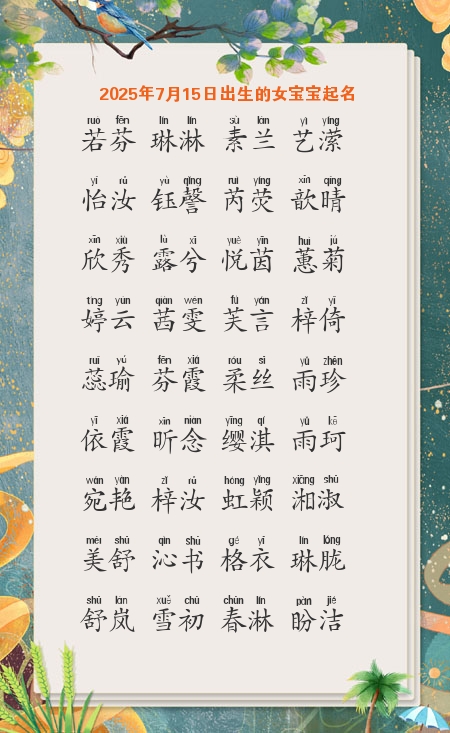 2025年7月15日出生的女宝宝起名
ruò fēn lín lín sù lán yì yíng
若芬 琳淋 素兰 艺潆
yí rǔ yù qìng ruì yíng xīn qíng
怡汝 钰謦 芮荧 歆晴
xīn xiù lù xī yuè yīn huì jú
欣秀 露兮 悦茵 蕙菊
tíng yún qiàn wén fú yán zǐ yǐ
婷云 茜雯 芙言 梓倚
ruǐ yú fēn xiá róu sī yǔ zhēn
蕊瑜 芬霞 柔丝 雨珍
yī xiá xīn niàn yīng qí yǔ kē
依霞 昕念 缨淇 雨珂
wǎn yàn zǐ rǔ hóng yǐng xiāng shū
宛艳 梓汝 虹颖 湘淑
měi shū qìn shū gé yī lín lóng
美舒 沁书 格衣 琳胧
shū lán xuě chū chūn lín pàn jié
舒岚 雪初 春淋 盼洁